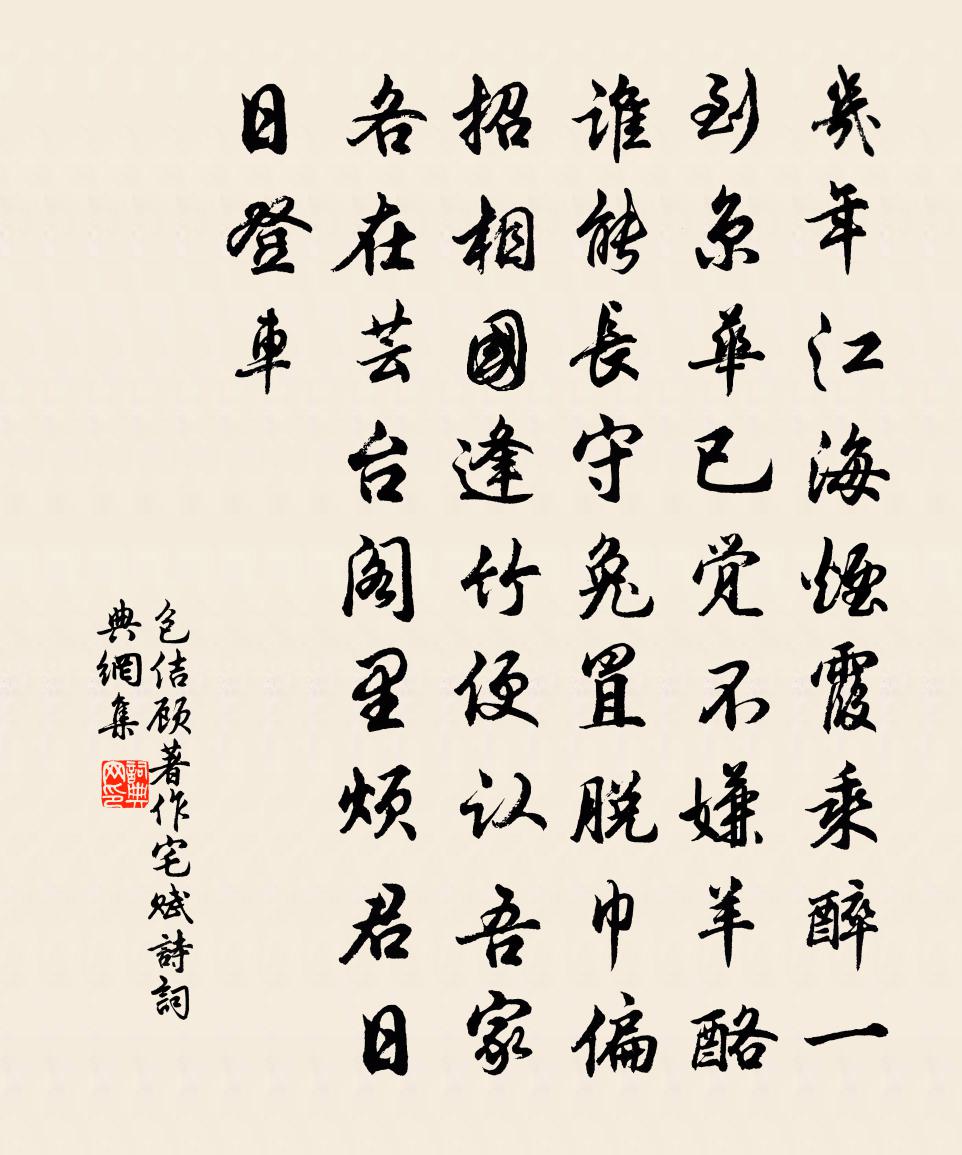 幾年江海煙霞乘醉一
到京華已覺不嫌羊酪
谁能長守兔罝脱巾偏
招相國逢竹便认吾家
各在芸台阁里烦君日
日登車
包佶顾著作宅赋詩詞
典網集
詞典网印